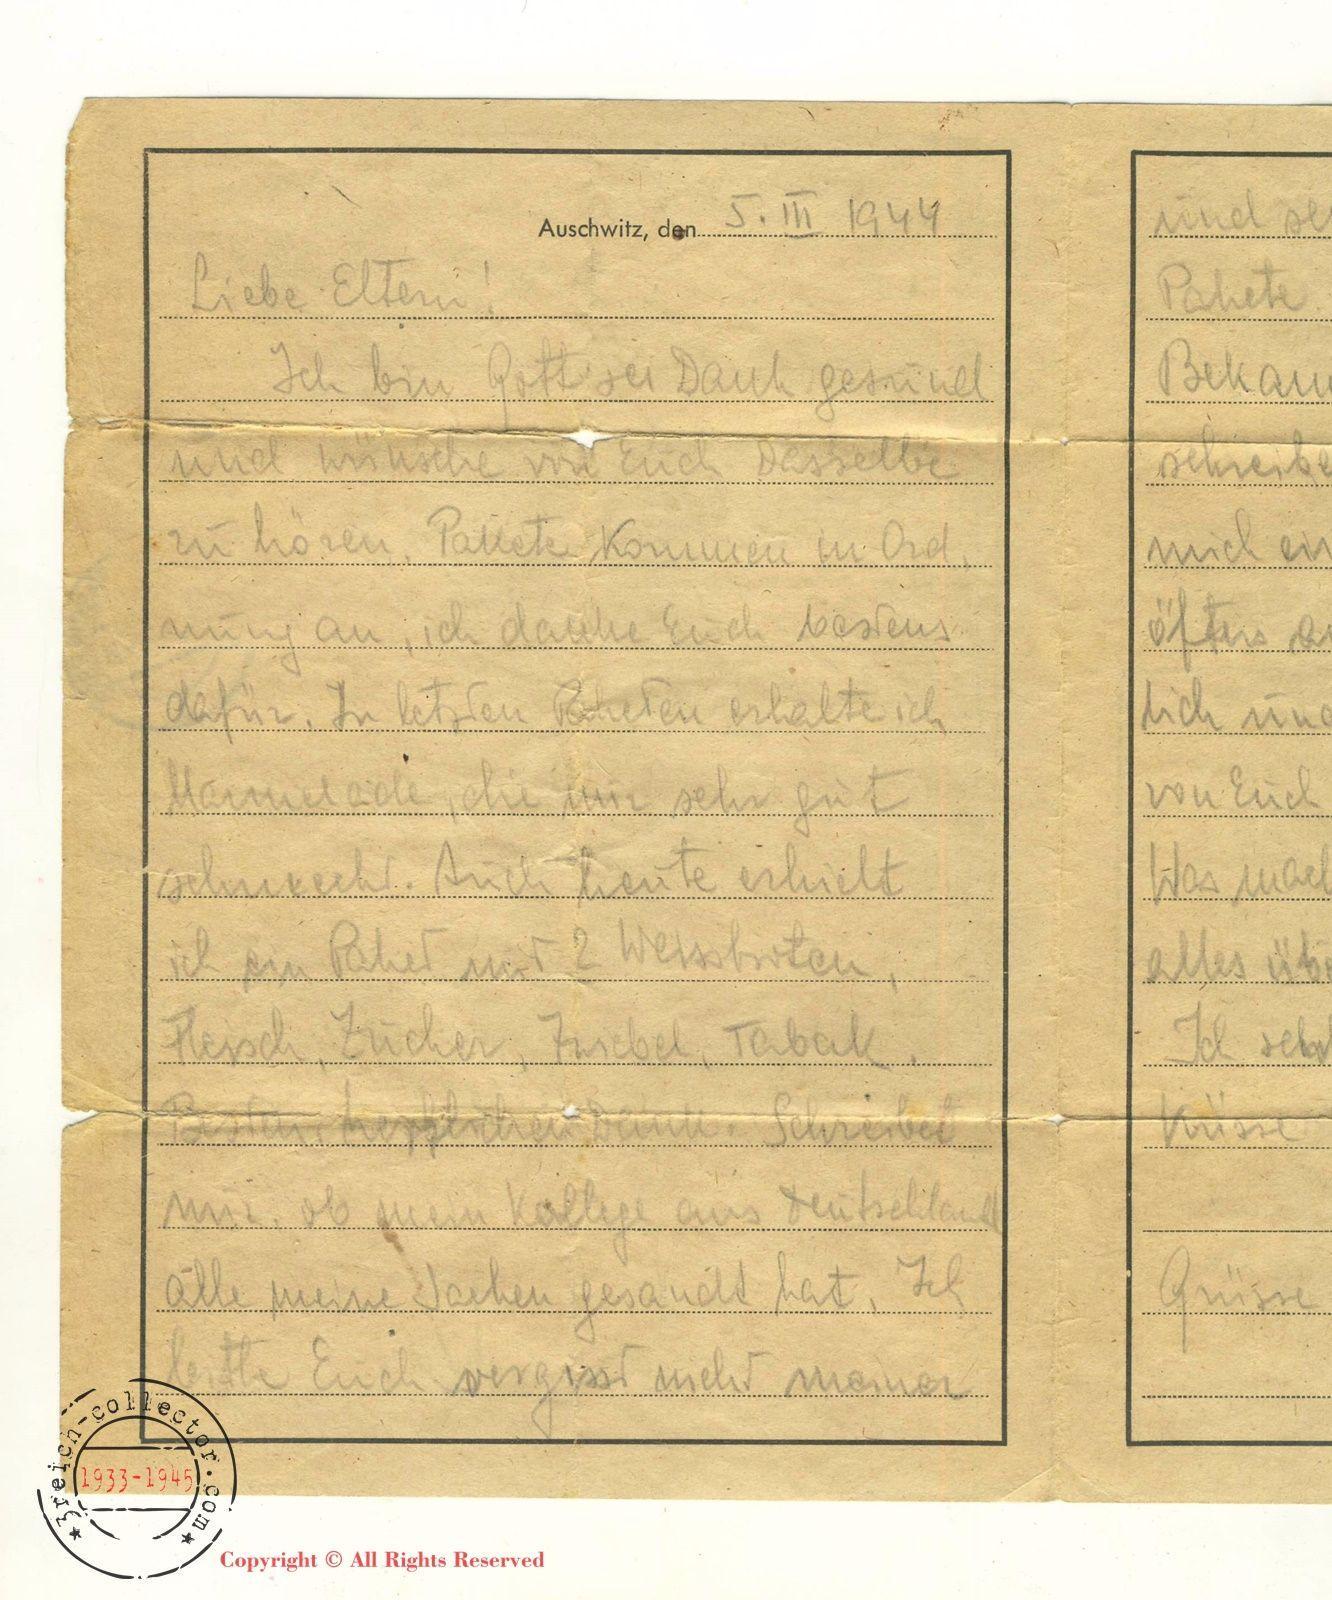 Auschwitz, den 5. III 1944
Liebe Eltern!
Ich bin Gott sei Dank gesund
und wünsche von Euch Dasselbe
zu hören. Pakete kommen in Ord,
nung an, ich danke Euch bestens
dafür. In letzten Paketen erhalte ich
Marmelade, die mir sehr gut
schmeckt. Auch heute erhielt
ich ein Paket mit 2 Weissbroten,
Fleisch, Zucker, Zwiebel, Tabak.
Besten, herzlichen Dank. Schreibet
mir, ob mein Kollege aus Deutschland
alle meine Sachen gesandt hat. Ich
bitte Euch vergisst nicht meiner
und se
Pakete.
Bekan
schreibe
mich ein
öfters
lich und
von Euch
Was mach
alles übe
Ich
Küsse
Grüsse
3reich-collector.com
1933-1945
Copyright © All Rights Reserved